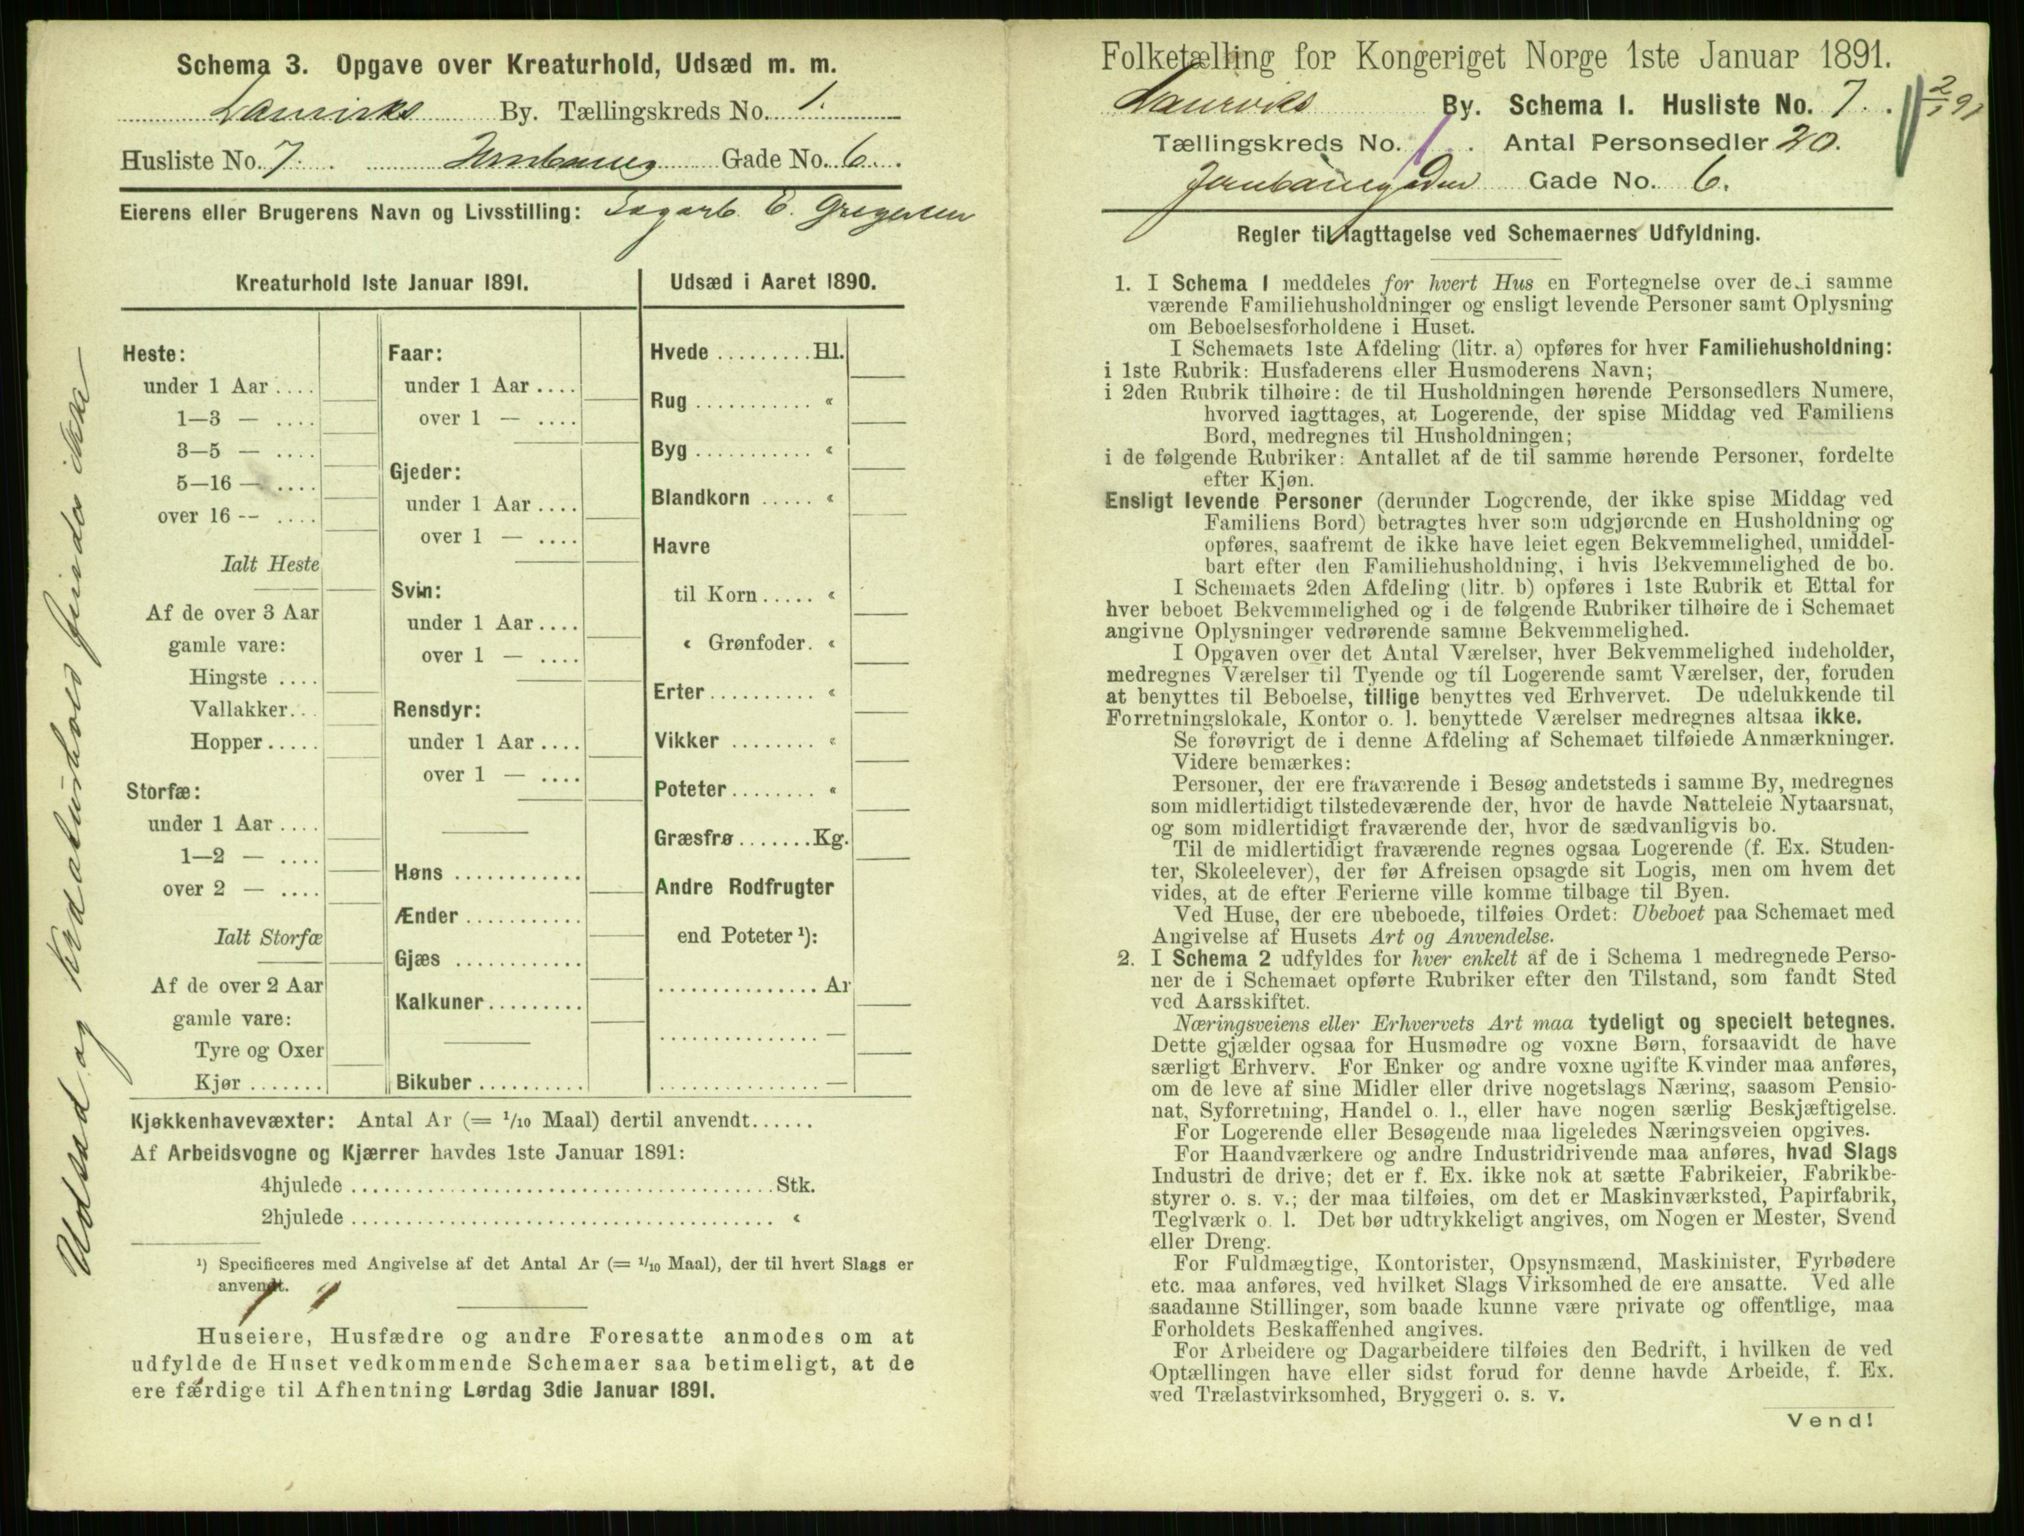 Schema 3. Opgave over Kreaturhold, Udsæd m. m.
Laurviks By. Tællingskreds No. 1.
Husliste No. 7. Jernbaneg Gade No. 6.
Eierens eller Brugerens Navn og Livsstilling: E. Gregersen
Kreaturhold 1ste Januar 1891.
Heste:
under 1 Aar ....
1—3 — ....
3—5 — ....
5—16 — ....
over 16 -- ....
Ialt Heste
Af de over 3 Aar
gamle vare:
Hingste ....
Vallakker...
Hopper.....
Storfæ:
under 1 Aar ....
1—2 — ....
over 2 — ....
Ialt Storfæ
Af de over 2 Aar
gamle vare:
Tyre og Oxer
Kjør .......
Faar:
under 1 Aar ....
over 1 — ....
Gjeder:
under 1 Aar ....
over 1 — ....
Svin:
under 1 Aar ....
over 1 — ....
Rensdyr:
under 1 Aar ....
over 1 — ....
Høns ............
Ænder ...........
Gjæs ............
Kalkuner.........
Bikuber ..........
Udsæd i Aaret 1890.
Hvede .........Hl.
Rug ........... «
Byg ........... «
Blandkorn ..... «
Havre
til Korn ..... «
« Grønfoder. «
Erter.......... «
Vikker ........ «
Poteter........ «
Græsfrø .......Kg.
Andre Rodfrugter
end Poteter ¹):
............... Ar
............... —
............... —
Kjøkkenhavevæxter: Antal Ar (= 1/10 Maal) dertil anvendt......
Af Arbeidsvogne og Kjærrer havdes 1ste Januar 1891:
4hjulede ........................................ Stk.
2hjulede ........................................ «
¹) Specificeres med Angivelse af det Antal Ar (= 1/10 Maal), der til hvert Slags er
anvendt.
Huseiere, Husfædre og andre Foresatte anmodes om at
udfylde de Huset vedkommende Schemaer saa betimeligt, at de
ere færdige til Afhentning Lørdag 3die Januar 1891.
Udsæd og Kreaturhold findes ikke
Folketælling for Kongeriget Norge 1ste Januar 1891.
Laurviks By. Schema 1. Husliste No. 7.
2/1 91
Tællingskreds No. 1. Antal Personsedler 20.
Jernbanegaden Gade No. 6.
Regler til Iagttagelse ved Schemaernes Udfyldning.
1. I Schema 1 meddeles for hvert Hus en Fortegnelse over de i samme
værende Familiehusholdninger og ensligt levende Personer samt Oplysning
om Beboelsesforholdene i Huset.
I Schemaets 1ste Afdeling (litr. a) opføres for hver Familiehusholdning:
i 1ste Rubrik: Husfaderens eller Husmoderens Navn;
i 2den Rubrik tilhøire: de til Husholdningen hørende Personsedlers Numere,
hvorved iagttages, at Logerende, der spise Middag ved Familiens
Bord, medregnes til Husholdningen;
i de følgende Rubriker: Antallet af de til samme hørende Personer, fordelte
efter Kjøn.
Ensligt levende Personer (derunder Logerende, der ikke spise Middag ved
Familiens Bord) betragtes hver som udgjørende en Husholdning og
opføres, saafremt de ikke have leiet egen Bekvemmelighed, umiddel-
bart efter den Familiehusholdning, i hvis Bekvemmelighed de bo.
I Schemaets 2den Afdeling (litr. b) opføres i 1ste Rubrik et Ettal for
hver beboet Bekvemmelighed og i de følgende Rubriker tilhøire de i Schemaet
angivne Oplysninger vedrørende samme Bekvemmelighed.
I Opgaven over det Antal Værelser, hver Bekvemmelighed indeholder,
medregnes Værelser til Tyende og til Logerende samt Værelser, der, foruden
at benyttes til Beboelse, tillige benyttes ved Erhvervet. De udelukkende til
Forretningslokale, Kontor o. l. benyttede Værelser medregnes altsaa ikke.
Se forøvrigt de i denne Afdeling af Schemaet tilføiede Anmærkninger.
Videre bemærkes:
Personer, der ere fraværende i Besøg andetsteds i samme By, medregnes
som midlertidigt tilstedeværende der, hvor de havde Natteleie Nytaarsnat,
og som midlertidigt fraværende der, hvor de sædvanligvis bo.
Til de midlertidigt fraværende regnes ogsaa Logerende (f. Ex. Studen-
ter, Skoleelever), der før Afreisen opsagde sit Logis, men om hvem det
vides, at de efter Ferierne ville komme tilbage til Byen.
Ved Huse, der ere ubeboede, tilføies Ordet: Ubeboet paa Schemaet med
Angivelse af Husets Art og Anvendelse.
2. I Schema 2 udfyldes for hver enkelt af de i Schema 1 medregnede Perso-
ner de i Schemaet opførte Rubriker efter den Tilstand, som fandt Sted
ved Aarsskiftet.
Næringsveiens eller Erhvervets Art maa tydeligt og specielt betegnes.
Dette gjælder ogsaa for Husmødre og voxne Børn, forsaavidt de have
særligt Erhverv. For Enker og andre voxne ugifte Kvinder maa anføres,
om de leve af sine Midler eller drive nogetslags Næring, saasom Pensio-
nat, Syforretning, Handel o. l., eller have nogen særlig Beskjæftigelse.
For Logerende eller Besøgende maa ligeledes Næringsveien opgives.
For Haandværkere og andre Industridrivende maa anføres, hvad Slags
Industri de drive; det er f. Ex. ikke nok at sætte Fabrikeier, Fabrikbe-
styrer o. s. v.; der maa tilføies, om det er Maskinværksted, Papirfabrik,
Teglværk o. l. Det bør udtrykkeligt angives, om Nogen er Mester, Svend
eller Dreng.
For Fuldmægtige, Kontorister, Opsynsmænd, Maskinister, Fyrbødere
etc. maa anføres, ved hvilket Slags Virksomhed de ere ansatte. Ved alle
saadanne Stillinger, som baade kunne være private og offentlige, maa
Forholdets Beskaffenhed angives.
For Arbeidere og Dagarbeidere tilføies den Bedrift, i hvilken de ved
Optællingen have eller sidst forud for denne havde Arbeide, f. Ex.
ved Trælastvirksomhed, Bryggeri o. s. v.
Vend!